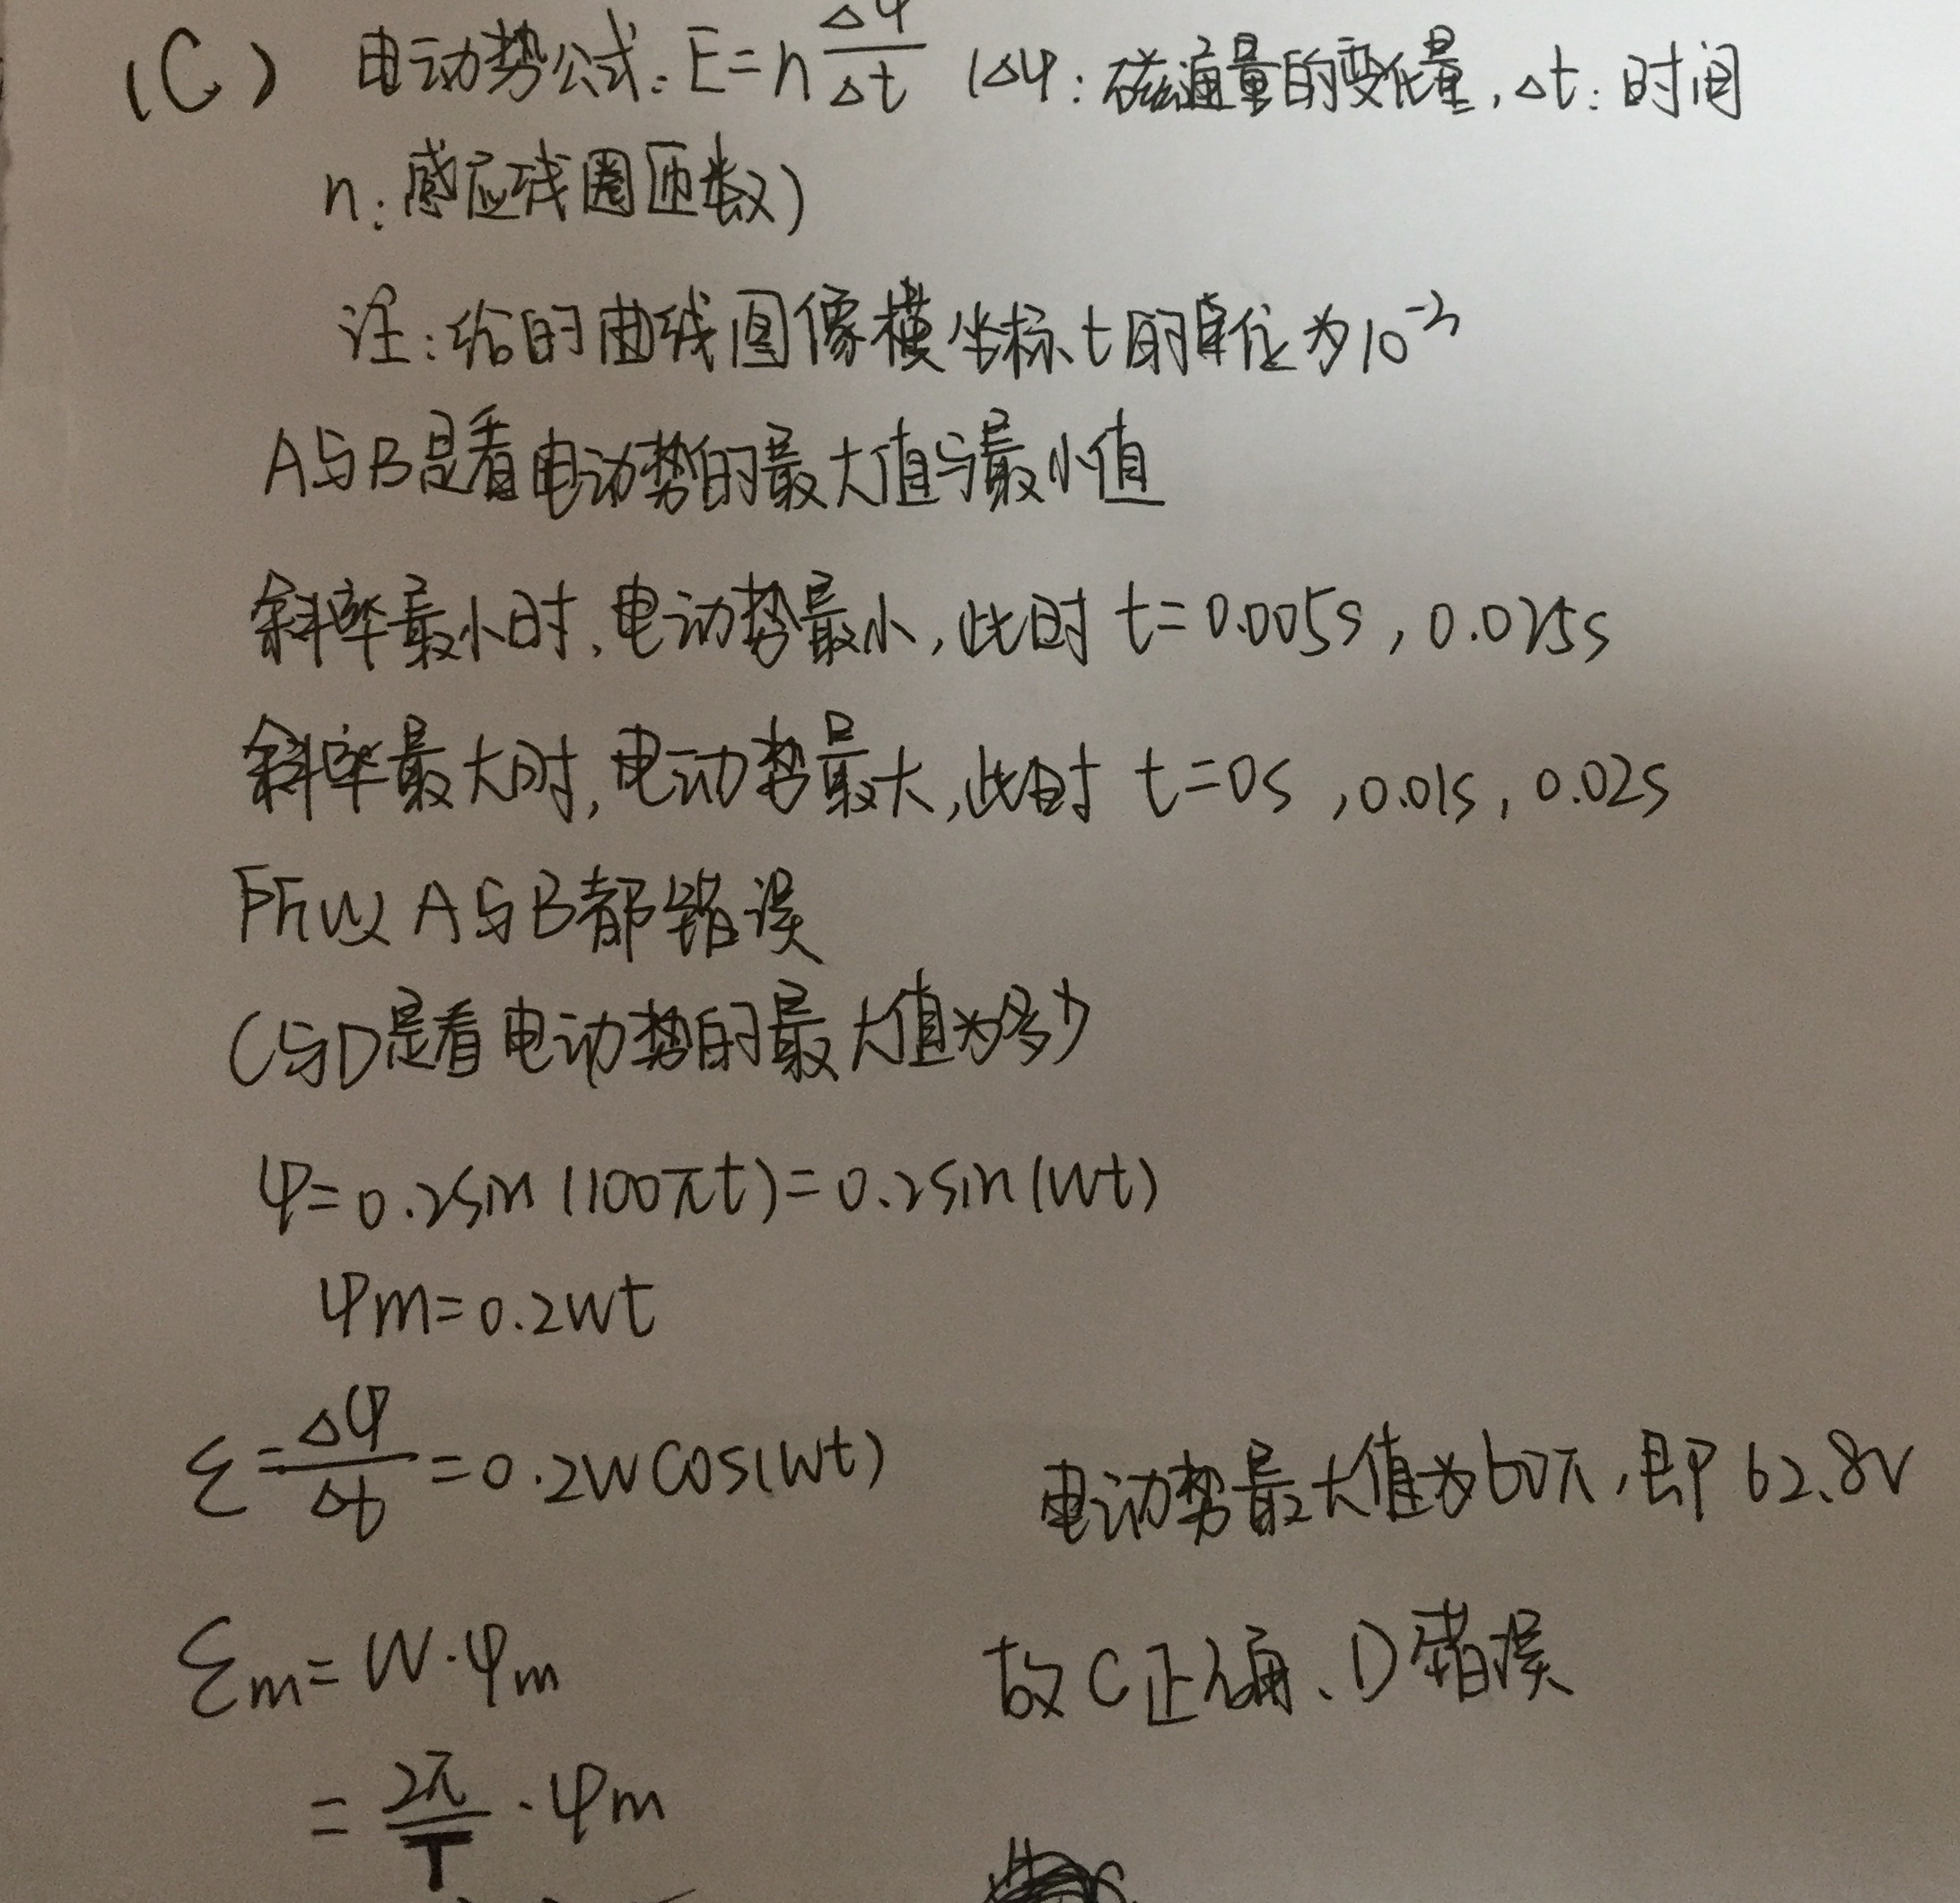 (C) 电动势公式: E=n Δφ/Δt (Δφ: 磁通量的变化量, Δt: 时间
n: 感应线圈匝数)
注: 给的曲线图像横坐标t的单位为10⁻³
A与B是看电动势的最大值与最小值
斜率最小时, 电动势最小, 此时 t=0.005s, 0.015s
斜率最大时, 电动势最大, 此时 t=0s, 0.01s, 0.02s
所以A与B都错误
C与D是看电动势的最大值为多少
φ=0.2sin(100πt)=0.2sin(wt)
φm=0.2wt
ε=Δφ/Δt=0.2wcos(wt) 电动势最大值为60π, 即62.8V
εm=w·φm 故C正确、D错误
=2π/T·φm